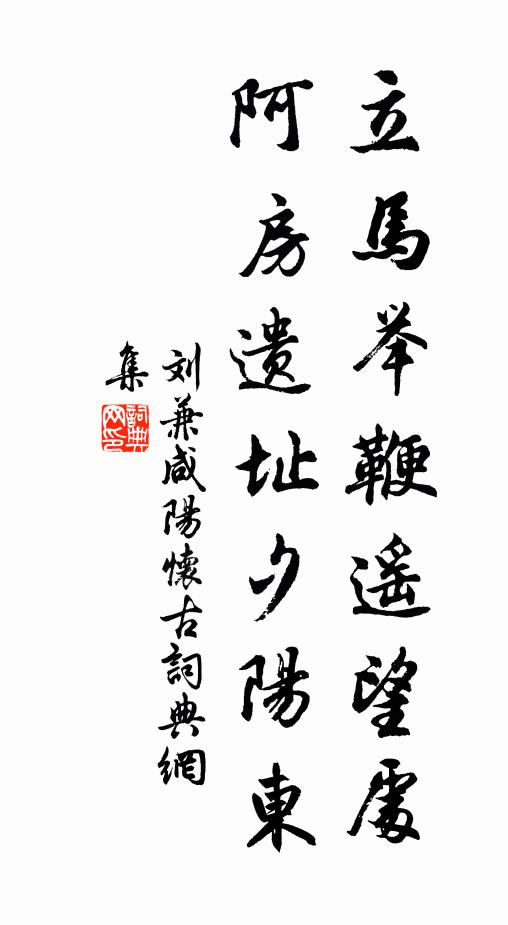 立馬举鞭遥望處
阿房遗址夕陽東
刘兼咸陽懷古詞典網
集
詞典
网印